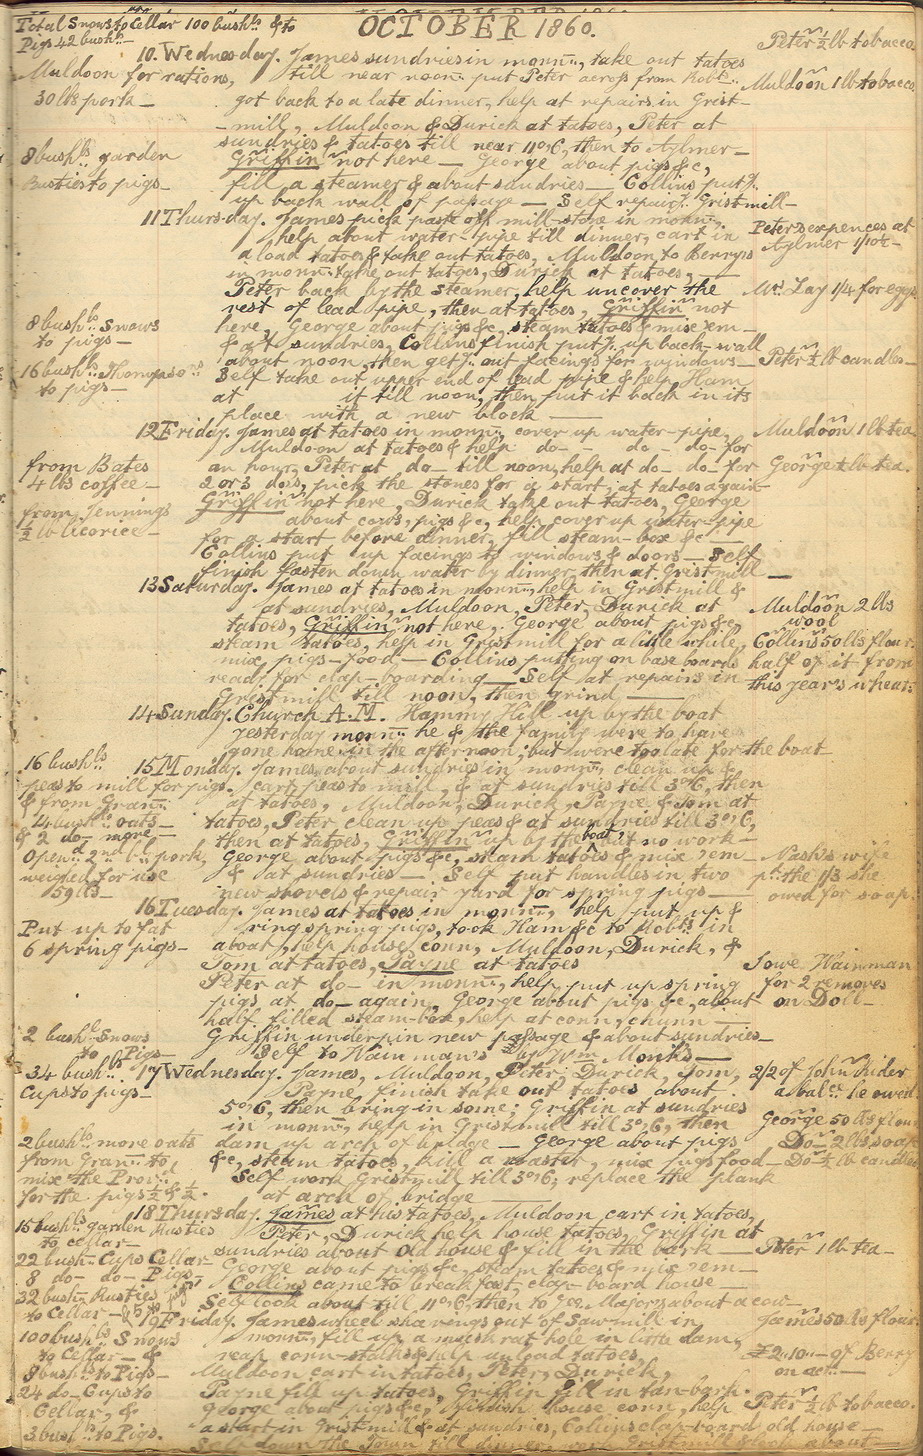 OCTOBER 1860.
Total Snows to Cellar 100 bushls & to
Pigs 42 bushls
10. Wednesday. James sundries in mornn:, take out tatoes
Peter ½ lb tobacco
Muldoon for rations,
till near noon: put Peter across from Robts.
Muldoon 1 lb tobacco
30 lbs pork –
got back to a late dinner, help at repairs in Grist-
-mill, Muldoon & Durick at tatoes, Peter at
sundries & tatoes till near 11 o'c, then to Aylmer –
8 bushls garden
Griffin not here – George about pigs &c,
Rusties to pigs –
fill a steamer & about sundries – Collins putg.
up back wall of passage – Self repairg. Gristmill –
11 Thursday. James pick part of mill-stone in mornn:,
Peter's expences at
help about water-pipe till dinner, cart in
Aylmer 1/10½ –
a load tatoes & take out tatoes, Muldoon to Berrys
in mornn: take out tatoes, Durick at tatoes, –
Peter back by the steamer, help uncover the
Mrs. Lay 1/4 for eggs
rest of lead pipe, then at tatoes, Griffin not
8 bushls Snows
here, George about pigs &c, steam tatoes & mix 'em –
to pigs –
& at sundries, Collins finish putg. up back-wall
about noon, then getg. out facings for windows –
Peter ½ lb candles –
16 bushls Thompsons
Self take out upper end of lead pipe & help Ham
to pigs –
at it till noon, then put it back in its
place with a new block –
12 Friday. James at tatoes in mornn:, cover up water-pipe,
Muldoon 1 lb tea
Muldoon at tatoes & help do – do – do – for
from Bates
an hour, Peter at do – till noon, help at do – do – for
George ½ lb tea.
4 lbs coffee –
2 or 3 do's, pick the stones for a start, at tatoes again –
from Jennings
Griffin not here, Durick take out tatoes, George
½ lb licorice –
about cows, pigs &c, help cover up water-pipe
for a start before dinner, fill steam-box &c –
Collins put up facings to windows & doors – Self
finish fasten down water by dinner, then at Gristmill –
13 Saturday. James at tatoes in mornn:, help in Gristmill &
at sundries, Muldoon, Peter, Durick at
Muldoon 2 lbs
wool
tatoes, Griffin not here, George about pigs &c,
steam tatoes, help in Gristmill for a little while,
Collins 50 lbs flour.
mix pigs-food, – Collins putting on base boards
half of it from
ready for clap-boarding – Self at repairs in
this year's wheat
Gristmill till noon, then grind –
14 Sunday. Church A.M. Hammy Hill up by the boat
yesterday mornn: he & the family were to have
gone home in the afternoon, but were too late for the boat
16 bushls
15 Monday. James about sundries in mornn:, clean up &
peas to mill for pigs.
cart peas to mill, & at sundries till 3 o'c, then
& from Grann:
at tatoes, Muldoon, Durick, Payne & Tom at
4 bushls oats –
tatoes, Peter clean up peas & at sundries till 3 o'c,
& 2 do – more –
then at tatoes, Griffin up by the boat, but no work –
Opend 2nd bl pork,
George about pigs &c, steam tatoes & mix 'em –
Nash's wife
weighed for use
& at sundries – Self put handles in two
pd. the 1/3 she
159 lbs –
new shovels & repair yard for spring pigs –
owed for soap.
16 Tuesday. James at tatoes in mornn:, help put up &
Put up to fat
ring spring pigs, took Ham &c to Robts. in
6 spring pigs –
aboat, help house corn, Muldoon, Durick, &
Tom at tatoes, Payne at tatoes
I owe Wainman
Peter at do – in mornn:, help put up spring
for 2 removes
pigs at do – again, George about pigs &c, about
on Doll –
half filled steam-box, help at corn, churn –
2 bushls Snows
Griffin underpin new passage & about sundries –
to Pigs –
Self to Wainman's & by Wm Monk's –
34 bushls
17 Wednesday. James, Muldoon, Peter, Durick, Tom,
2/2 of John Rider
Cups to pigs –
Payne finish take out tatoes about
a balce. he owed.
5 o'c, then bring in some; Griffin at sundries
in mornn:, help in Gristmill till 3 o'c, then
George 50 lbs flour
2 bushls more oats
dam up arch of bridge – George about pigs
Do – 2 lbs soap
from Grann: to
&c, steam tatoes, kill a waster, mix pigs food –
Do – ½ lb candles
mix the Provd.
Self work Gristmill till 3 o'c, replace the plank
for the pigs ½ & ½.
at arch of bridge –
18 Thursday. James at his tatoes, Muldoon cart in tatoes,
15 bushls garden Rusties
Peter, Durick help house tatoes, Griffin at
to cellar –
sundries about old house & fill in the bark –
Peter 1 lb tea –
22 bush – Cups Cellar –
George about pigs &c, steam tatoes & mix 'em –
8 do – do – Pigs –
Collins came to breakfast, clap-board house –
32 bush – Rusties
Self look about till 11 o'c, then to Jos. Majors about a cow –
to Cellar –
19 Friday. James wheel shavings out of Sawmill in
James 50 lbs flour
100 bushls Snows
mornn:, fill up a muskrat hole in little dam,
to Cellar – &
reap corn-stalks & help unload tatoes,
£2.10 – of Berry
8 bushls to Pigs –
Muldoon cart in tatoes, Peter, Durick,
on act. –
24 do – Cups to
Payne fill up tatoes, Griffin fill in tan-bark.
Cellar, &
George about pigs &c, finish house corn, help
Peter ½ lb tobacco.
3 bushls to Pigs.
a start in Gristmill & at sundries, Collins clap-board old house –